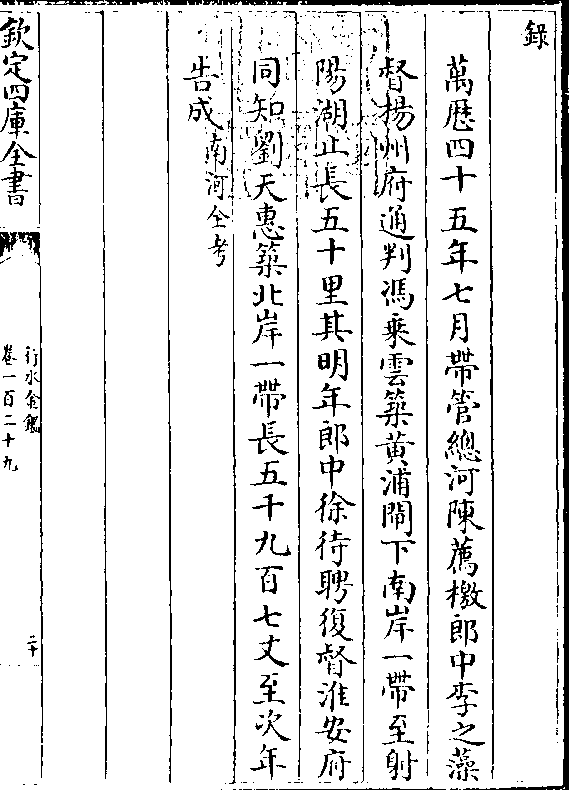 錄
萬厯四十五年七月帶管總河陳薦檄郎中李之藻
督揚州府通判馮乘雲築黄浦閘下南岸一帶至射
陽湖止長五十里其明年郎中徐待聘復督淮安府
同知劉天惠築北岸一帶長五千九百七丈至次年
告成南河全考
欽定四庫全書
行水金鑑
卷一百二十九
二十